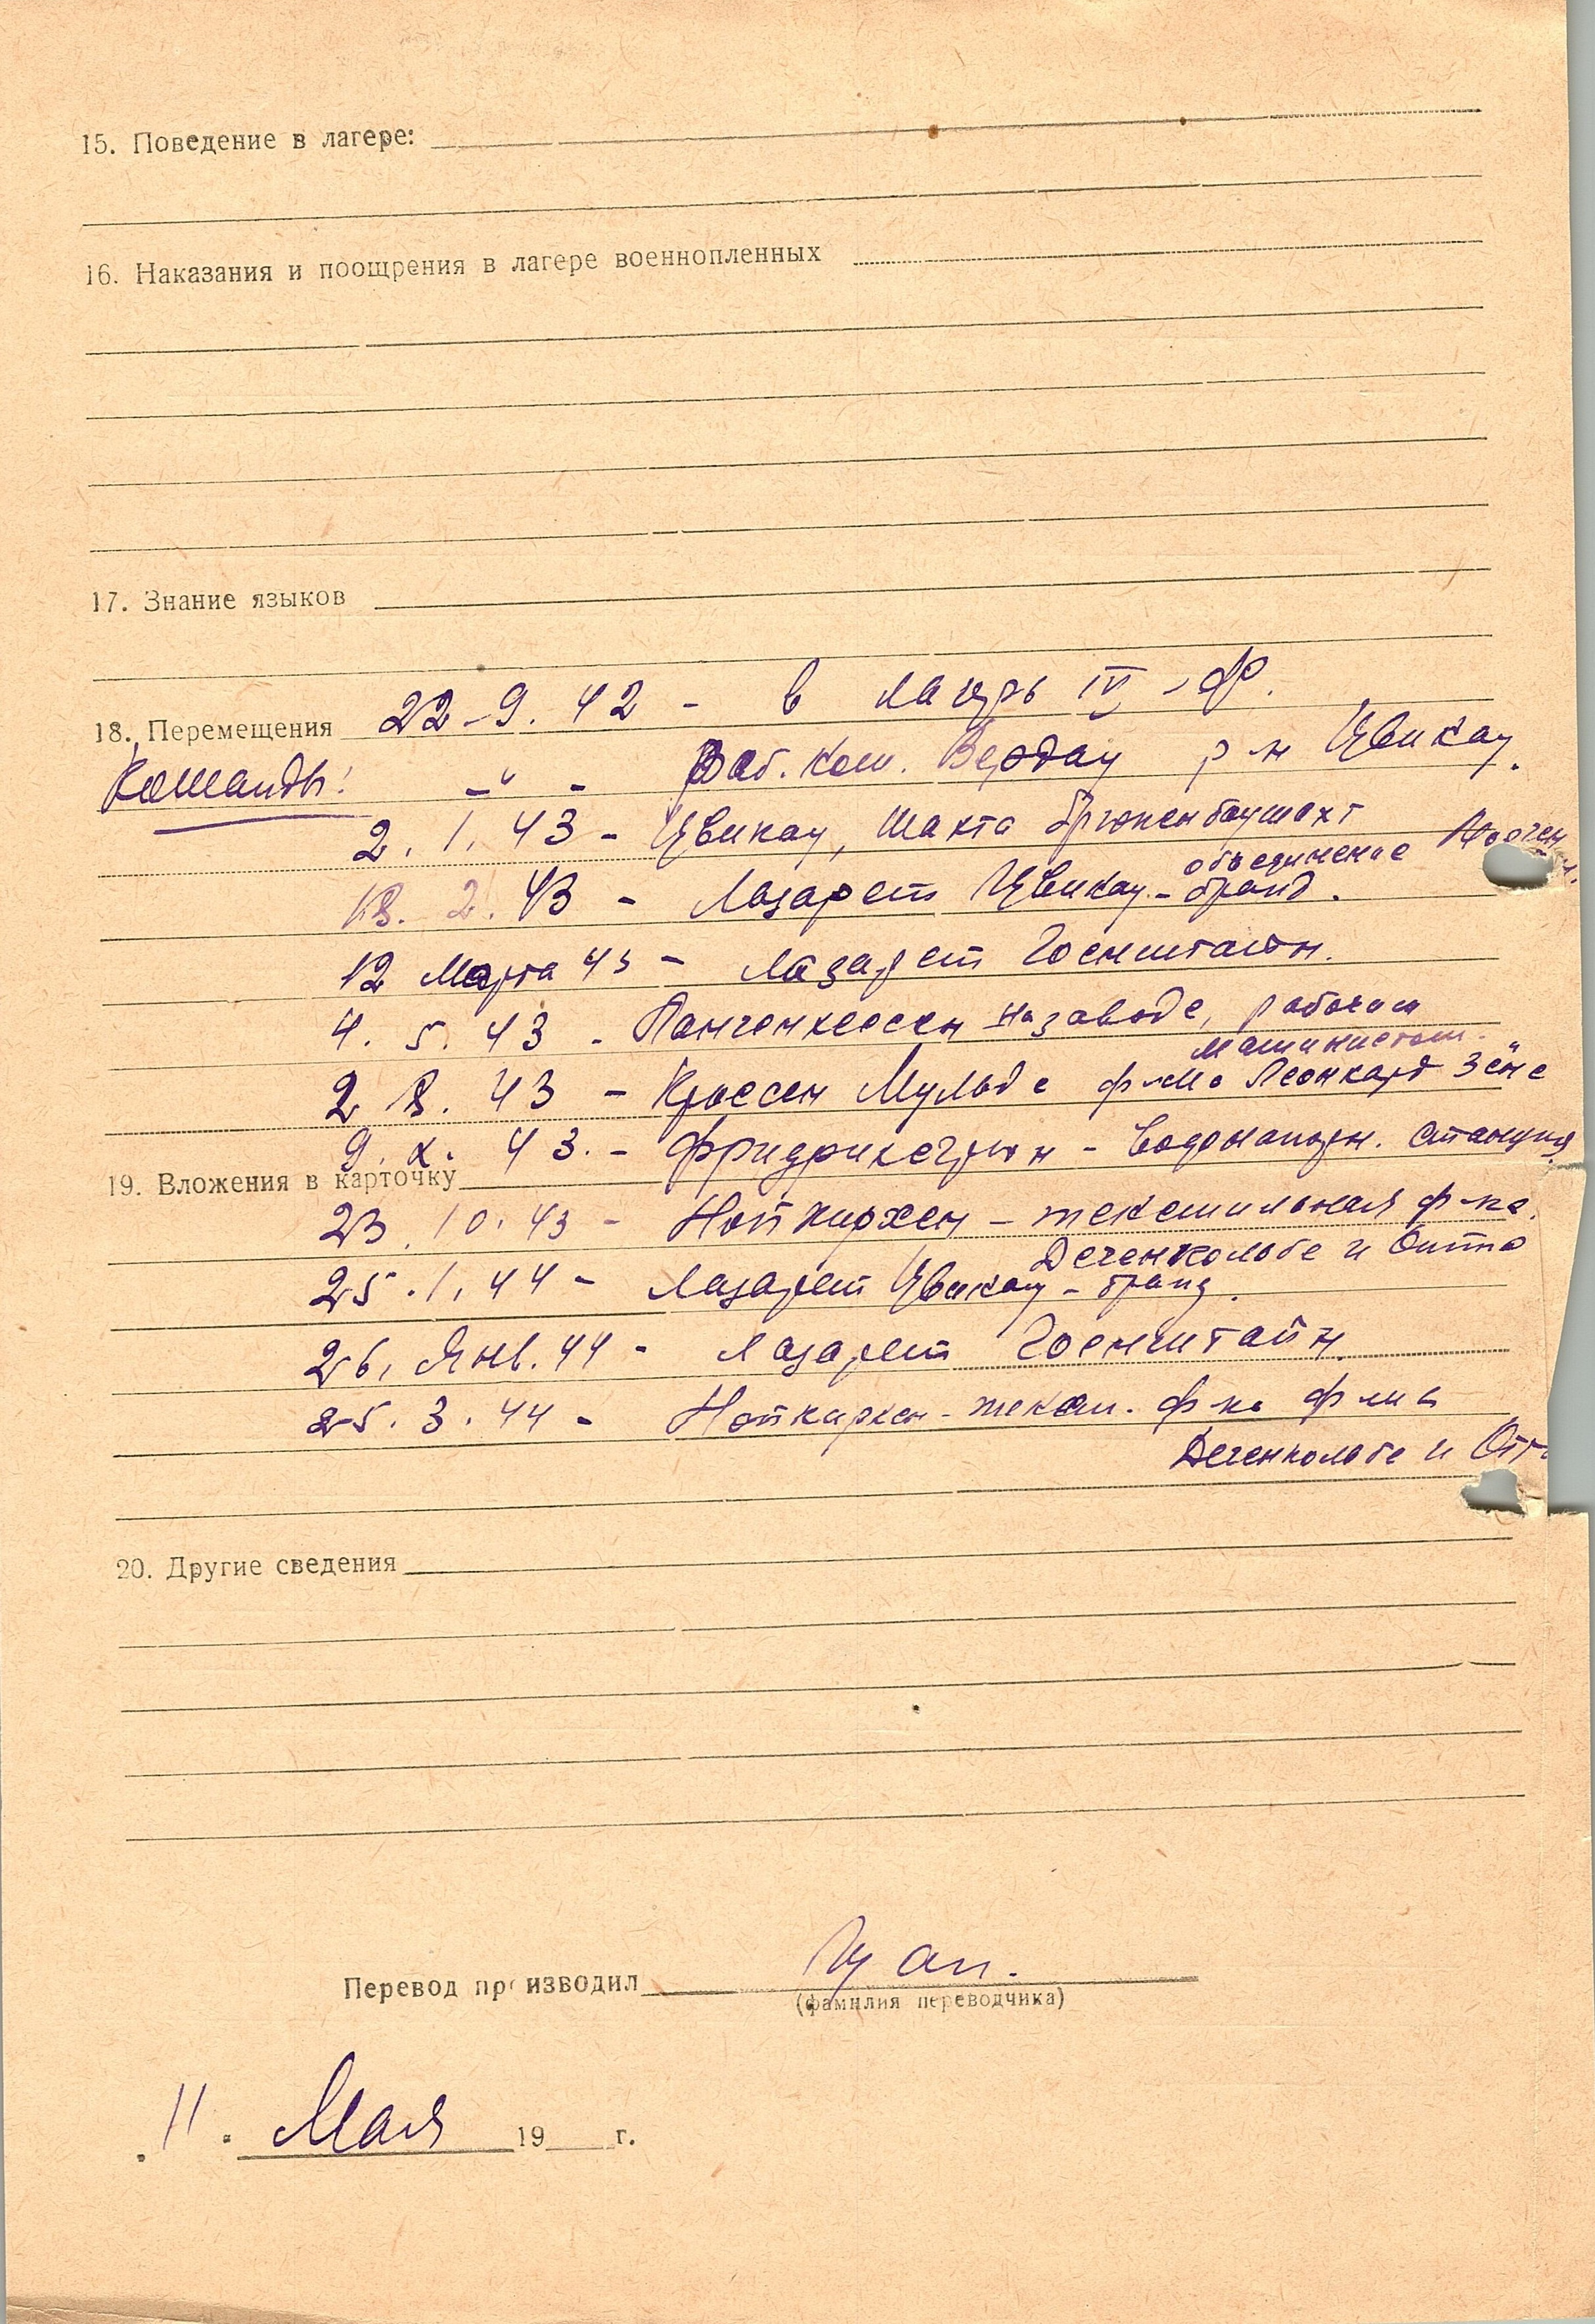 15. Поведение в лагере:
16. Наказания и поощрения в лагере военнопленных
17. Знание языков
18. Перемещения 22-9.42 - в лагерь IV-Ф.
Команды: -"- Раб. ком. Вердау р-н Цвикау.
2.1.43 - Цвикау, Шахта Брюкенбаушахт
объединение
18.2.43 - Лазарет Цвикау-Бранд.
12 Марта 43 - Лазарет Гоенштайн.
4.5.43 - на заводе, работат
машинистом.
2 8.43 - Кроссен Мульде ф-ма Леонхард Зёне
9.X.43. - Фридрихсгрюн - водонапорн. станция
19. Вложения в карточку
23.10.43 - Нойкирхен - текстильная ф-ка.
Дегенкольбе и Отто
25.1.44 - Лазарет Цвикау-Бранд.
26. Янв. 44 - Лазарет Гоенштайн
25.3.44 - Нойкирхен - текст. ф-ка ф-ма
Дегенкольбе и Отт
20. Другие сведения
Перевод производил
(фамилия переводчика)
11. Мая 19 г.